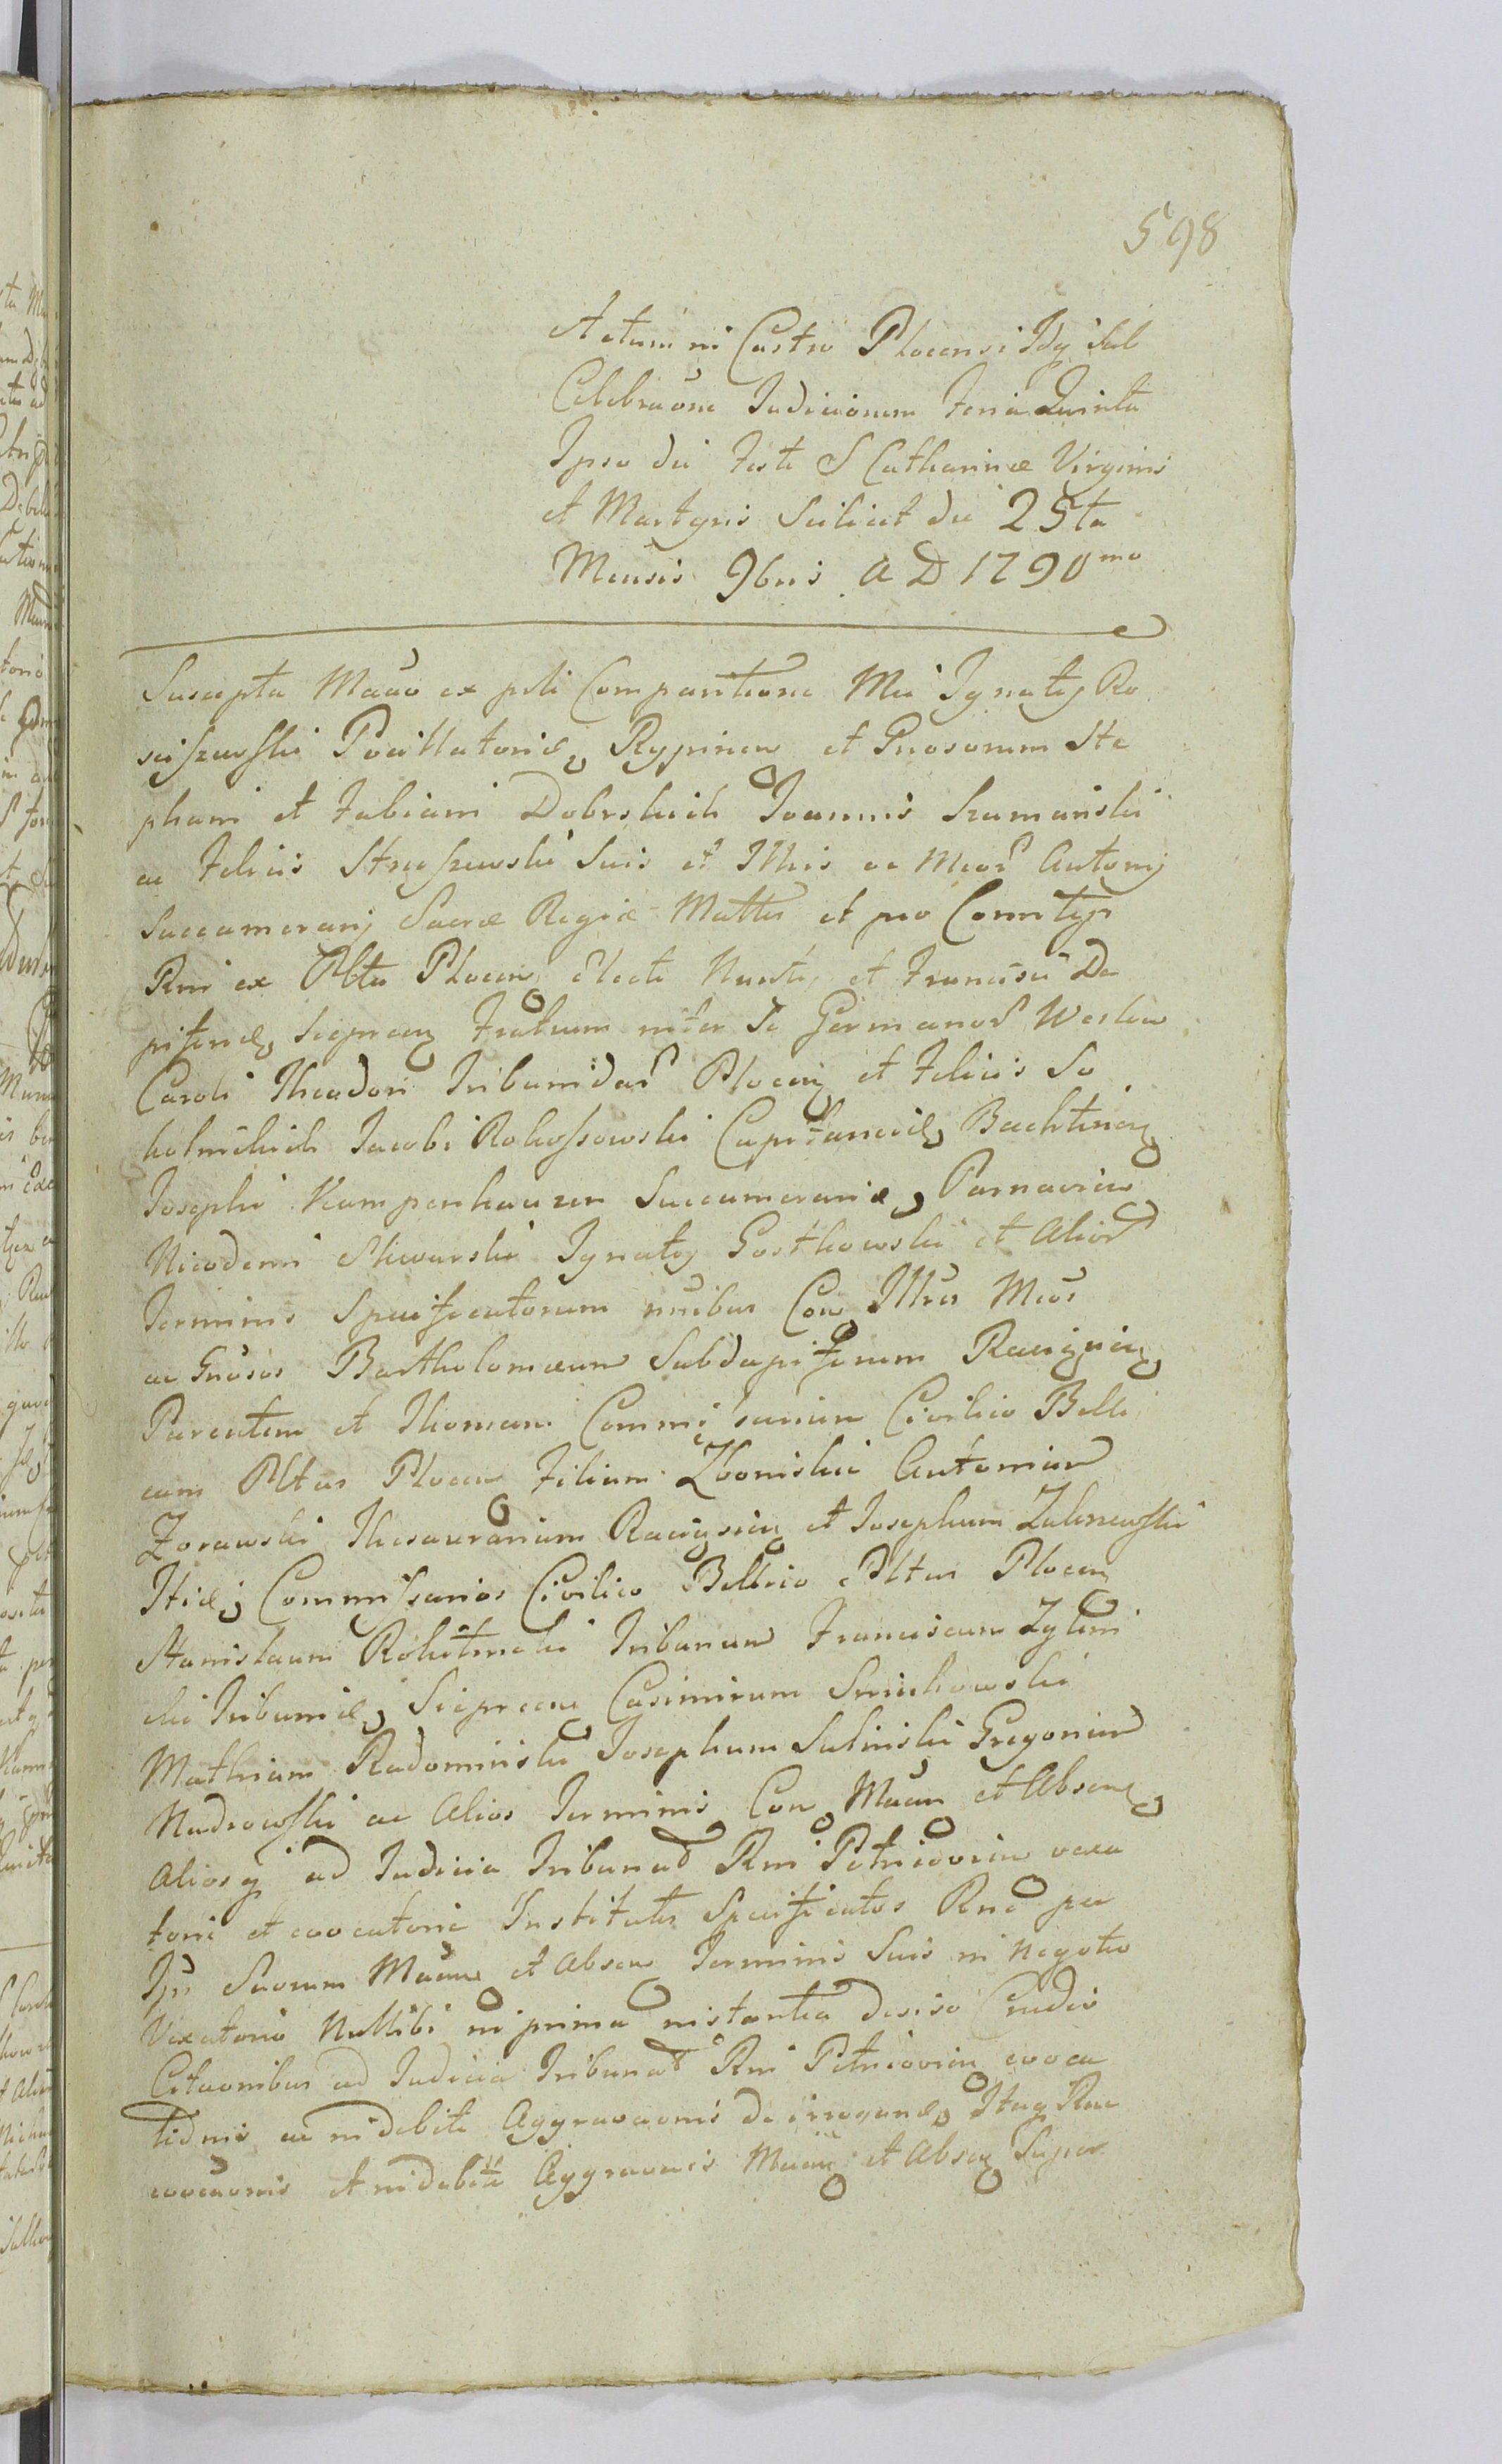 598
Actum in Castro Plocensi Idq sub
Celebraõne Judiciorum Feria Quinta
Ipso die Festi S Catharinæ Virginis
et Martyris Scilicet die 25ta
Mensis 9bris A D 1790mo
Suscepta Maõio ex psli Comparitione Mci Ignatij Ro
sciszewski Pocillatoridæ Rypinen et Gnosorum Ste
phani et Fabiani Dobrskich Joannis Szumański
ac Felicis Struszewski Suis et Illris ac Mcor Antonij
Succamerarij Sacræ Regiæ Mattis et pro Comitijs
Rni ex Pltu Plocen Electi Nuntij et Francisci Da
piferidæ Sieprcen Fratrum inter Se Germanor Weslow
Caroli Theodori Tribunidar Plocen et Felicis So
kolnickich Jacobi Rokossowski Capitaneidæ Bachtinen
Josephi Kampenhauzen Succameraridæ Parnavien
Nicodemi Skwarski Ignatij Gostkowski et Alior
Terminis Specificatorum noibus Con Illres Mcos
ac Gnosos Bartholomæum Subdapiferum Raciązien
Parentem et Thomam Commissarium Civilico Belli
cum Pltus Plocen Filium Zboinskie Antonium
Zorawski Thesaurarium Raciązien et Josephum Zalenewski
Itidæ Commissarios Civilico Bellico Pltus Plocen
Stanislaum Rokitnicki Tribunum Franciscum Zylin
ski Tribunidæ Sieprcen Casimirum Smichowski
Mathiam Radominski Josephum Sulinski Gregorium
Nadrowski ac Alios Terminis Con Maõn et Absen
Aliosq ad Judicia Tribunal Rni Petricovien vexa
torie et evocatorie Institutis Specificatos Rne per
Ips Suorum Maõn et Absen Terminis Suis in Negotio
Vexatorio Nullibi in prima instantia deciso Crudis
Citaõnibus ad Judicia Tribunal Rni Petricovien evoca
tiõnis ac indebite Aggravaõnis de irrogand Itaq Rne
evocaõnis et indebitæ Aggravaõis Maõn et Absen Super